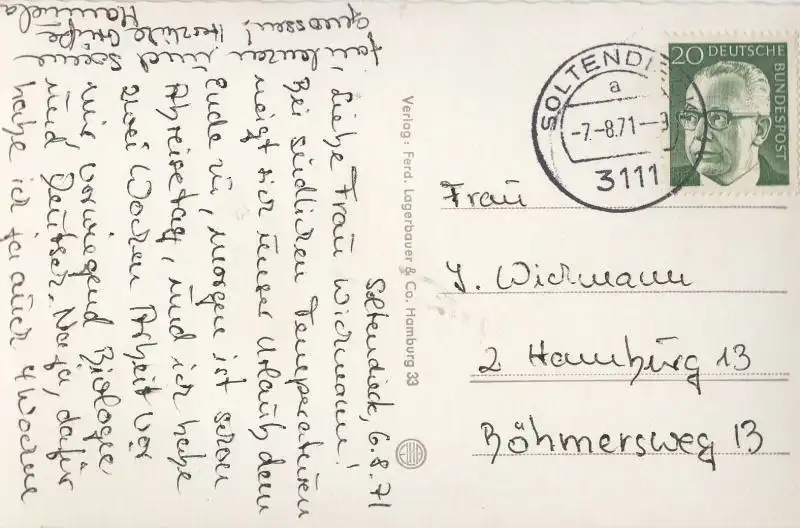 Soltendieck, 6.8.71
Liebe Frau Wichmann!
Bei südlichen Temperaturen
neigt sich unser Urlaub dem
Ende zu, morgen ist schon
Abreisetag, und ich habe
zwei Wochen Arbeit vor
mir vorwiegend Biologie
und Deutsch. Naja, dafür
habe ich ja auch 4 Wochen
faulenzen und Sonne
genossen! Herzliche Grüße
Verlag: Ferd. Lagerbauer & Co. Hamburg 33
SOLTENDIE
a
-7.-8.71-
3111
20 DEUTSCHE
BUNDESPOST
Frau
J. Wichmann
2 Hamburg 13
Böhmersweg 13